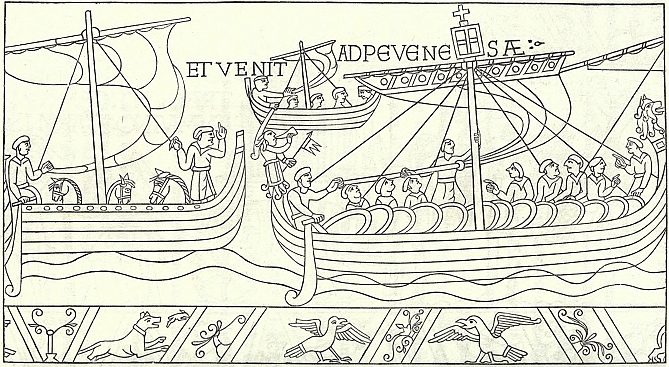 ET VENIT AD PEVENE SÆ: